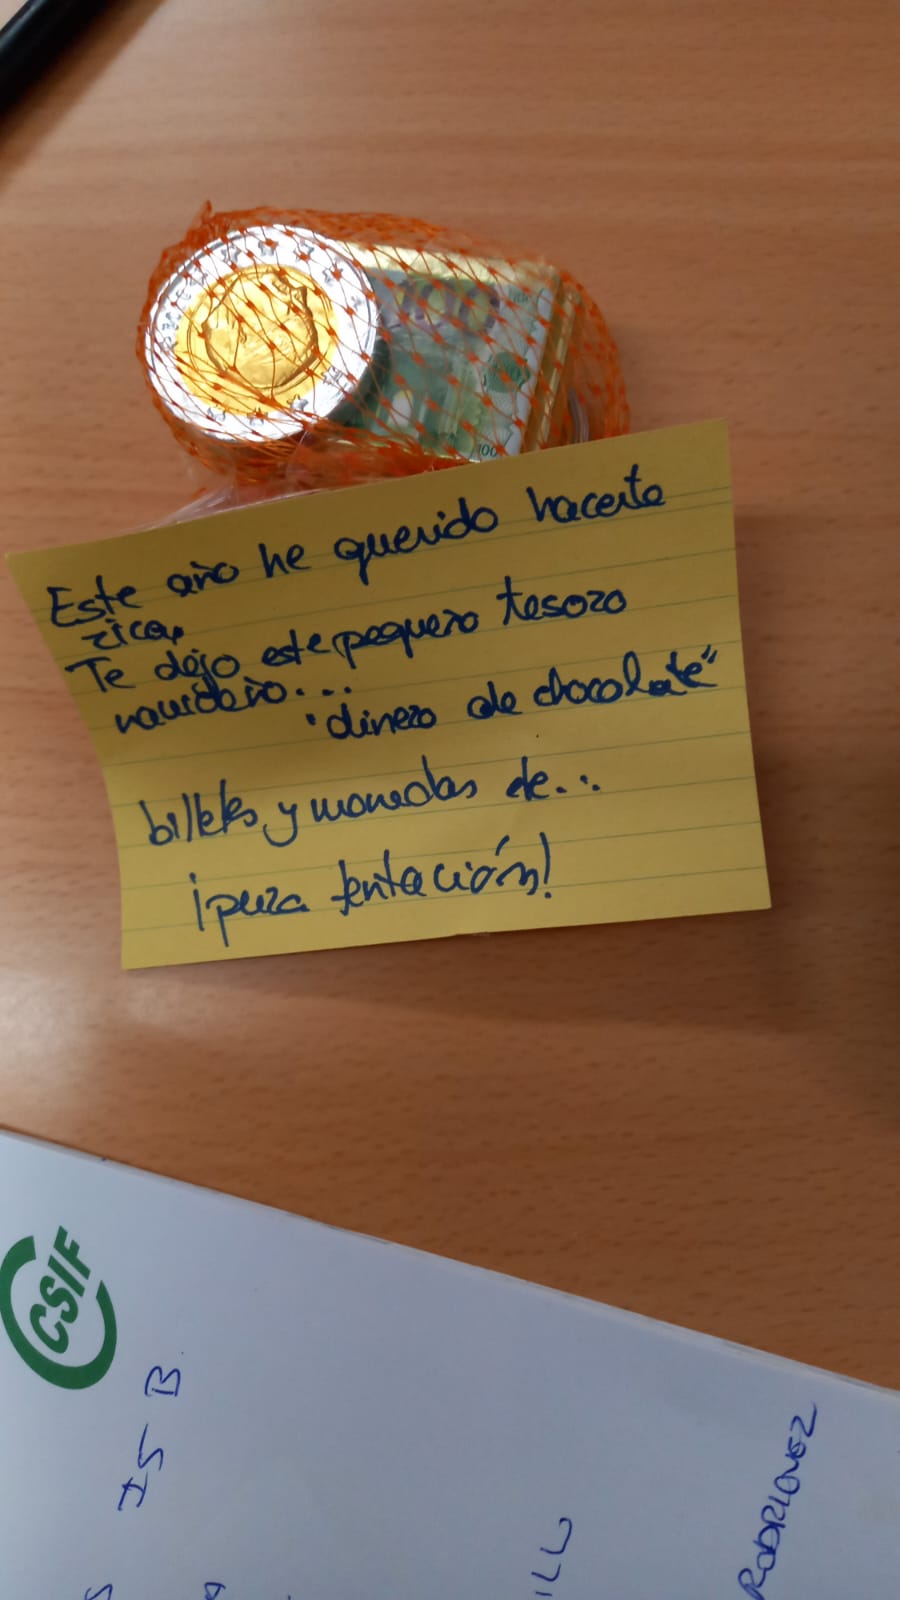 100
100
Este año he querido hacerte
rica,
Te dejo este pequeño tesoro
navideño...
"dinero de chocolate"
billetes y monedas de...
¡pura tentación!
CSIF
RODRIGUEZ